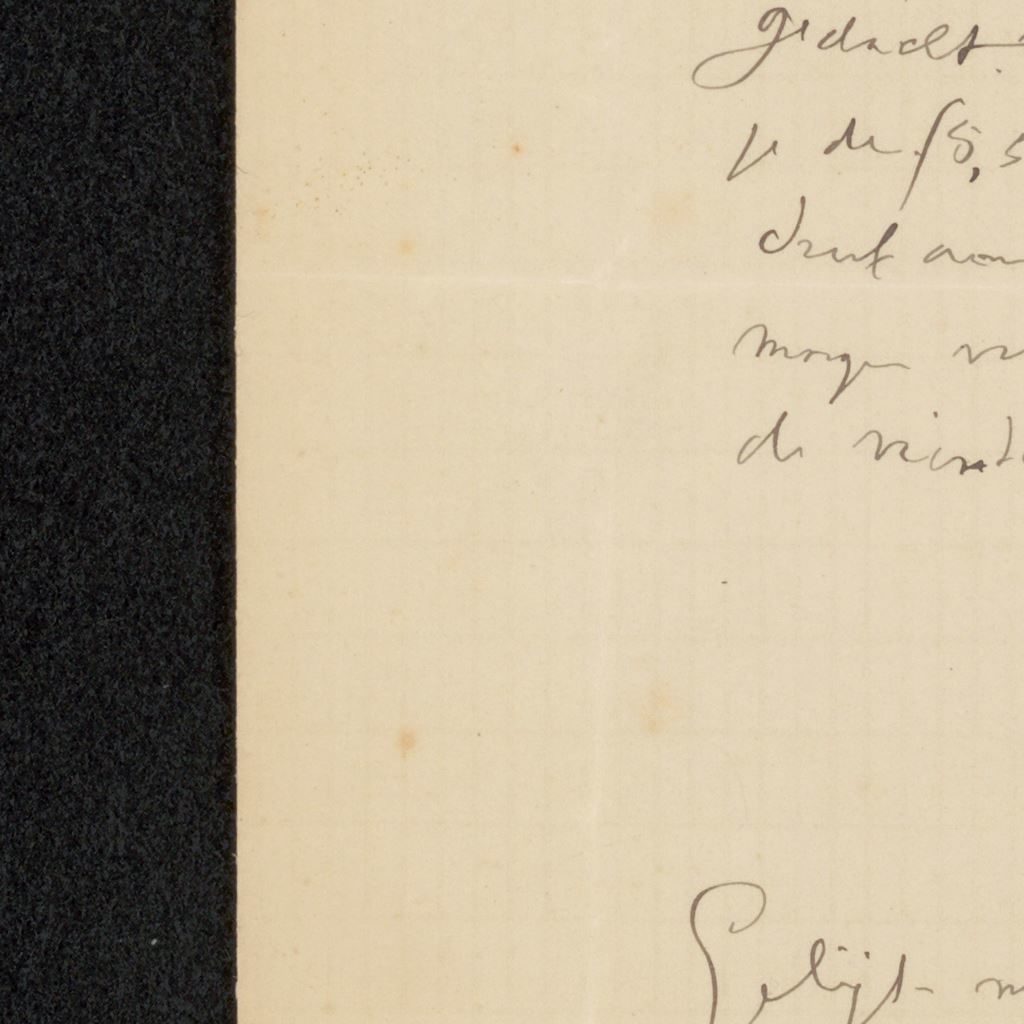 gedacht.
je de f 5,5
druk aan
morgen
de vriend
Gelijk